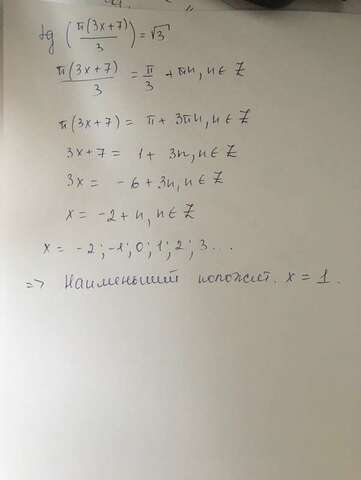 tg (π(3x+7)/3) = √3
π(3x+7)/3 = π/3 + πn, n ∈ Z
π(3x+7) = π + 3πn, n ∈ Z
3x+7 = 1 + 3n, n ∈ Z
3x = -6 + 3n, n ∈ Z
x = -2 + n, n ∈ Z
x = -2; -1; 0; 1; 2; 3...
=> Наименьший положит. x = 1.